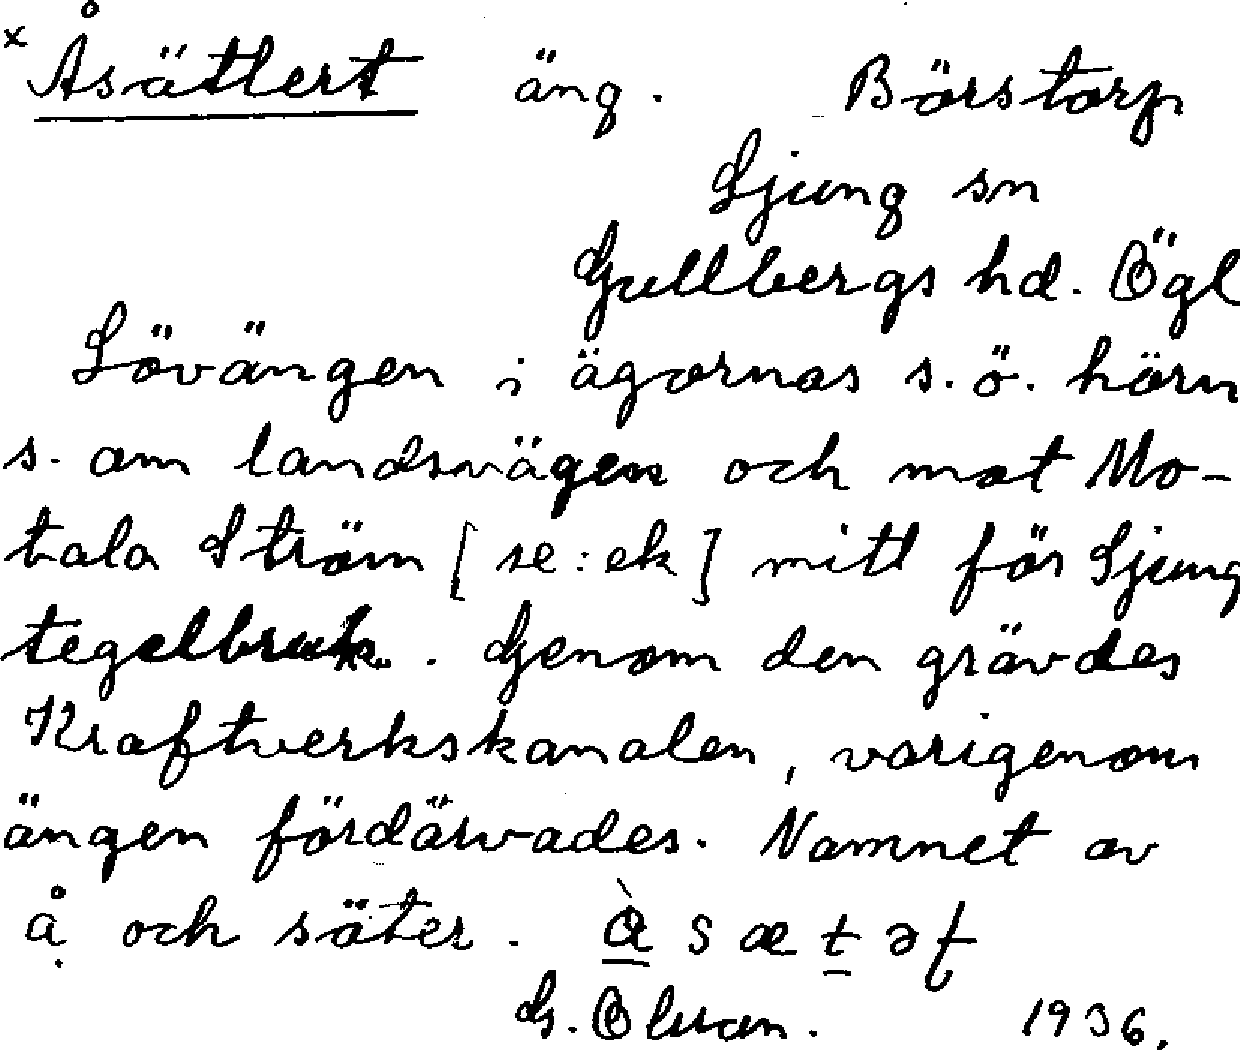 x Åsättert äng. Börstorp
Ljung sn
Gullbergs hd. Ögl
Lövängen i ägornas s.ö. hörn
s. om landsvägen och mot Mo-
tala Ström [se: ek] mitt för Ljung
tegelbruk. Genom den grävdes
Kraftverkskanalen, varigenom
ängen fördärvades. Namnet av
å och säter.
G. Olsson. 1936.